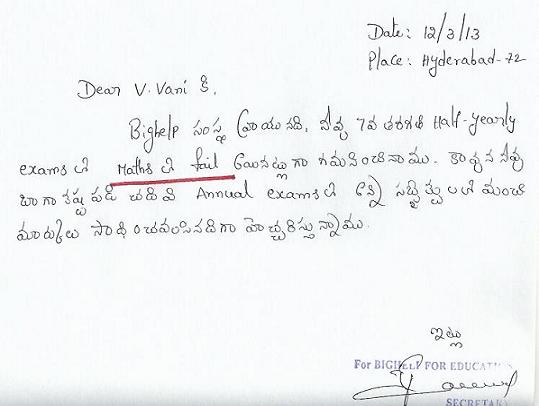 Date: 12/3/13
Place: Hyderabad-72
Dear V. Vani కి,
Bighelp సంస్థ వ్రాయునది, నీవు 7వ తరగతి Half-yearly
exams లో Maths లో fail అయినట్లుగా గమనించినాము. కావున నీవు
బాగా కష్టపడి చదివి Annual exams లో అన్ని సబ్జెక్ట్స్ లలో మంచి
మార్కులు సాధించవలసినదిగా హెచ్చరిస్తున్నాము.
ఇట్లు
For BIGHELP FOR EDUCATION
SECRETARY